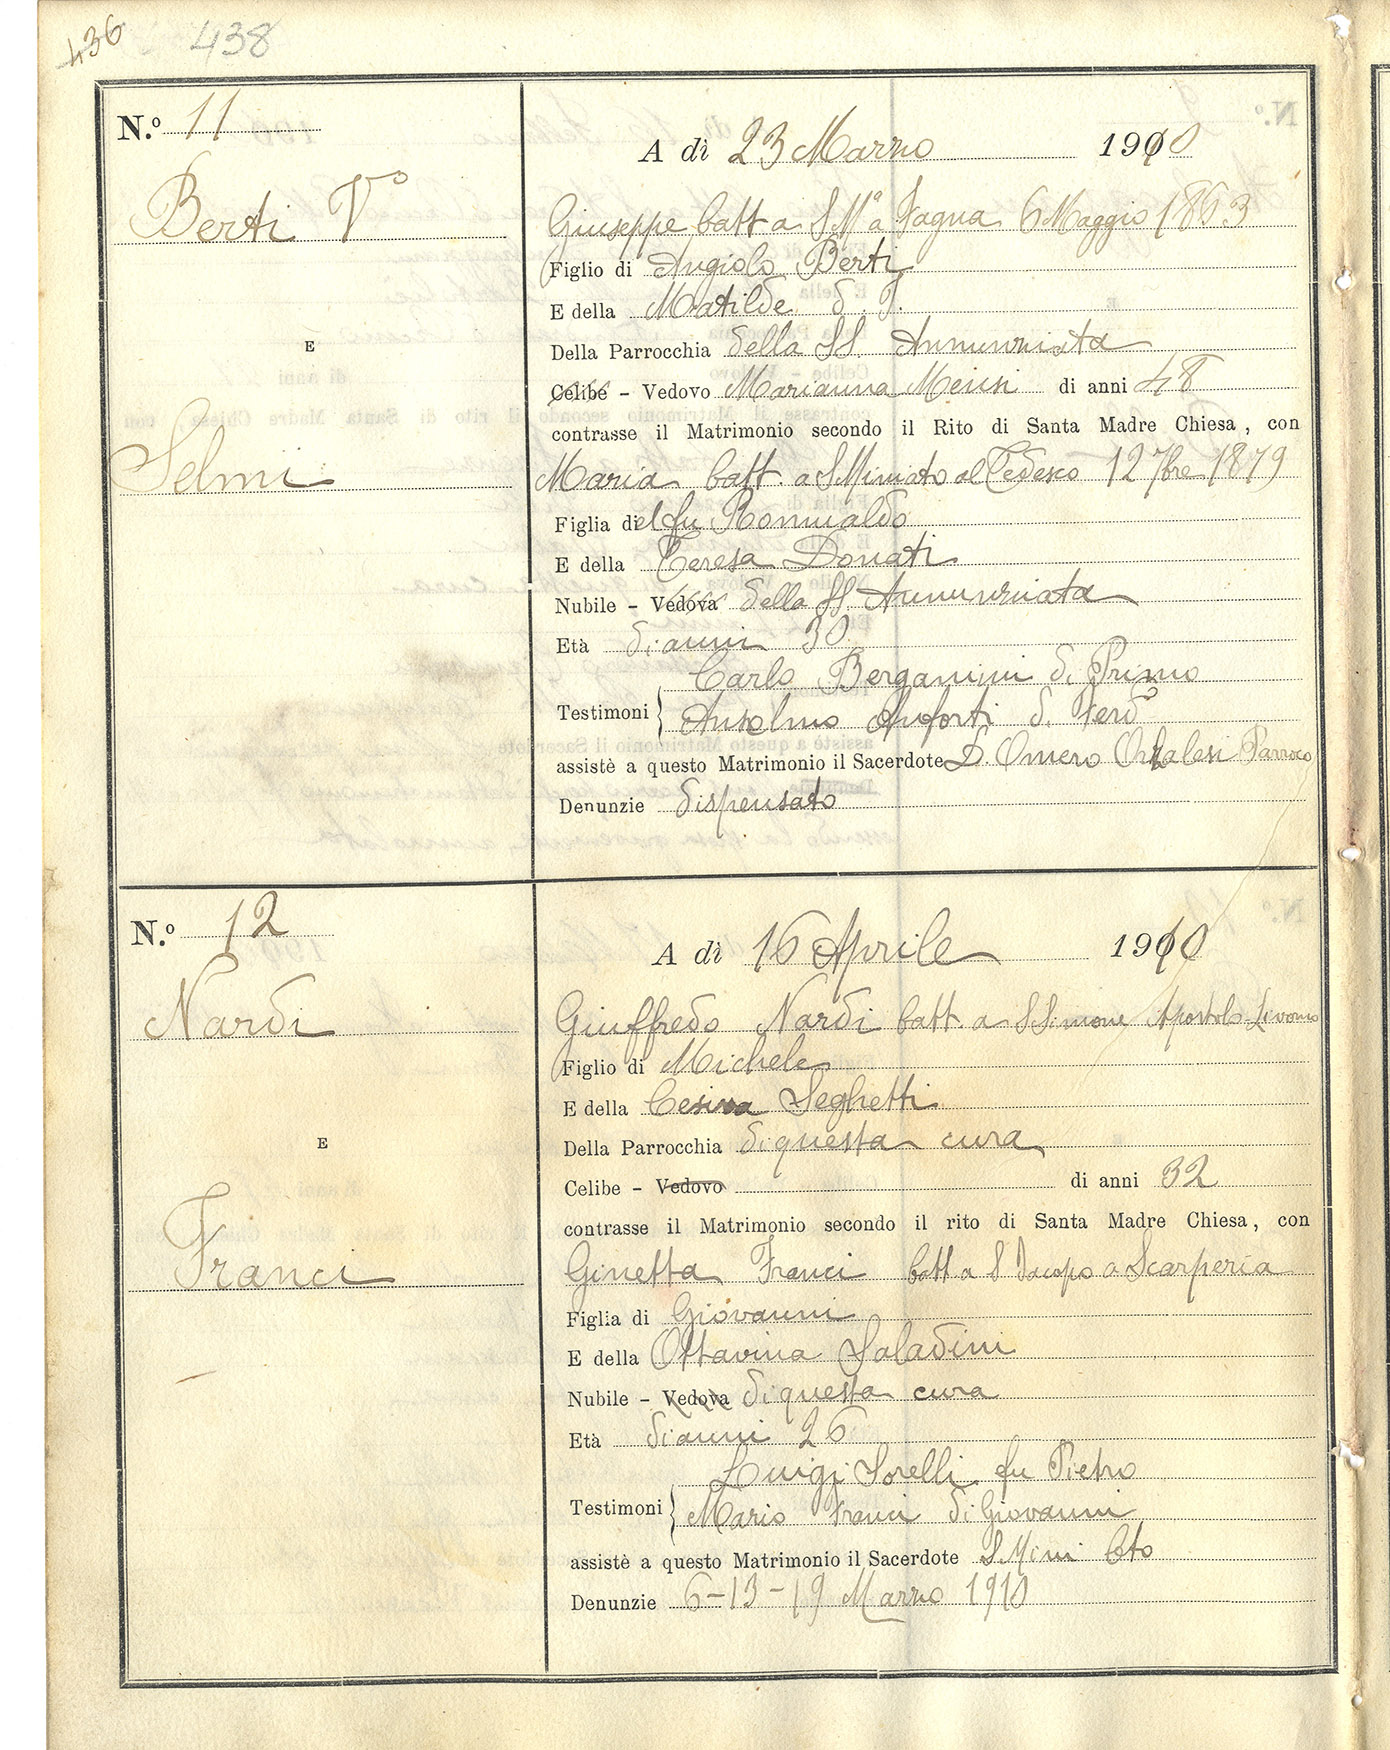 436 438
N.º 11
A dì 23 Marzo 1910
Berti Vº
Giuseppe batt a S Mª a Fagna 6 Maggio 1863
Figlio di Angiolo Berti
E della Matilde d. T.
E
Della Parrocchia della SS. Annunziata
Celibe - Vedovo Marianna Mensi di anni 48
contrasse il Matrimonio secondo il Rito di Santa Madre Chiesa, con
Selmi
Maria batt. a S Miniato al Tedesco 12 7bre 1879
Figlia del fu Romualdo
E della Teresa Donati
Nubile - Vedova della SS. Annunziata
Età di anni 30
Carlo Bergamini di Primo
Testimoni Anselmo d. Ferdº
assistè a questo Matrimonio il Sacerdote D. Omero Orzalesi Parroco
Denunzie dispensato
N.º 12
A dì 16 Aprile 1910
Nardi
Giuffredo Nardi batt. a S Simone Apostolo Livorno
Figlio di Michele
E della Seghetti
E
Della Parrocchia di questa cura
Celibe - Vedovo di anni 32
contrasse il Matrimonio secondo il rito di Santa Madre Chiesa, con
Franci
Ginetta Franci batt a S Jacopo a Scarperia
Figlia di Giovanni
E della Ottavina Saladini
Nubile - Vedova di questa cura
Età di anni 26
Luigi Sorelli fu Pietro
Testimoni Mario Franci di Giovanni
assistè a questo Matrimonio il Sacerdote S Mini Cto
Denunzie 6-13-19 Marzo 1910